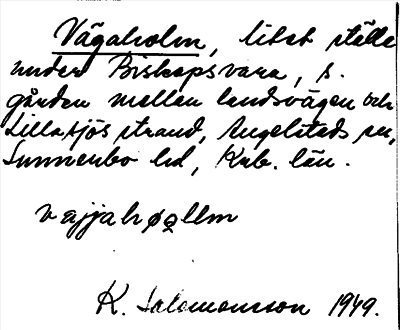 Vägaholm, litet ställe
under Biskopsvara, s.
gården mellan landsvägen och
Lillasjös strand, Angelstads sn,
Sunnerbo hd, Krb. län.
K. Salomonsson 1949.